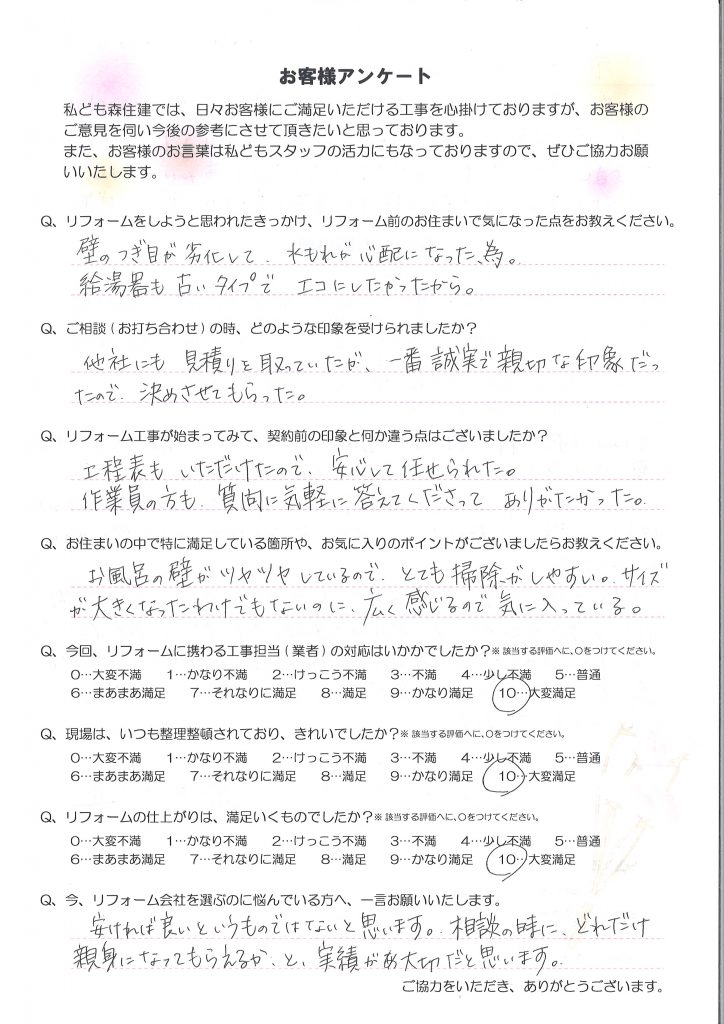 お客様アンケート
私ども森住建では、日々お客様にご満足いただける工事を心掛けておりますが、お客様の
ご意見を伺い今後の参考にさせて頂きたいと思っております。
また、お客様のお言葉は私どもスタッフの活力にもなっておりますので、ぜひご協力お願
いいたします。
Q、リフォームをしようと思われたきっかけ、リフォーム前のお住まいで気になった点をお教えください。
壁のつぎ目が劣化して、水もれが心配になった、為。
給湯器も古いタイプで エコにしたかったから。
Q、ご相談(お打ち合わせ)の時、どのような印象を受けられましたか?
他社にも見積りを取っていたが、一番誠実で親切な印象だっ
たので、決めさせてもらった。
Q、リフォーム工事が始まってみて、契約前の印象と何か違う点はございましたか?
工程表も いただけたので、安心して任せられた。
作業員の方も、質問に気軽に答えてくださって ありがたかった。
Q、お住まいの中で特に満足している箇所や、お気に入りのポイントがございましたらお教えください。
お風呂の壁がツヤツヤしているので、とても掃除がしやすい。サイズ
が大きくなったわけでもないのに、広く感じるので気に入っている。
Q、今回、リフォームに携わる工事担当(業者)の対応はいかかでしたか?※該当する評価へに、○をつけてください。
0…大変不満 1…かなり不満 2…けっこう不満 3…不満 4…少し不満 5…普通
6…まあまあ満足 7…それなりに満足 8…満足 9…かなり満足 10…大変満足
Q、現場は、いつも整理整頓されており、きれいでしたか?※該当する評価へに、○をつけてください。
0…大変不満 1…かなり不満 2…けっこう不満 3…不満 4…少し不満 5…普通
6…まあまあ満足 7…それなりに満足 8…満足 9…かなり満足 10…大変満足
Q、リフォームの仕上がりは、満足いくものでしたか?※該当する評価へに、○をつけてください。
0…大変不満 1…かなり不満 2…けっこう不満 3…不満 4…少し不満 5…普通
6…まあまあ満足 7…それなりに満足 8…満足 9…かなり満足 10…大変満足
Q、今、リフォーム会社を選ぶのに悩んでいる方へ、一言お願いいたします。
安ければ良いというものではないと思います。相談の時に、どれだけ
親身になってもらえるか、と、実績があ大切だと思います。
ご協力をいただき、ありがとうございます。